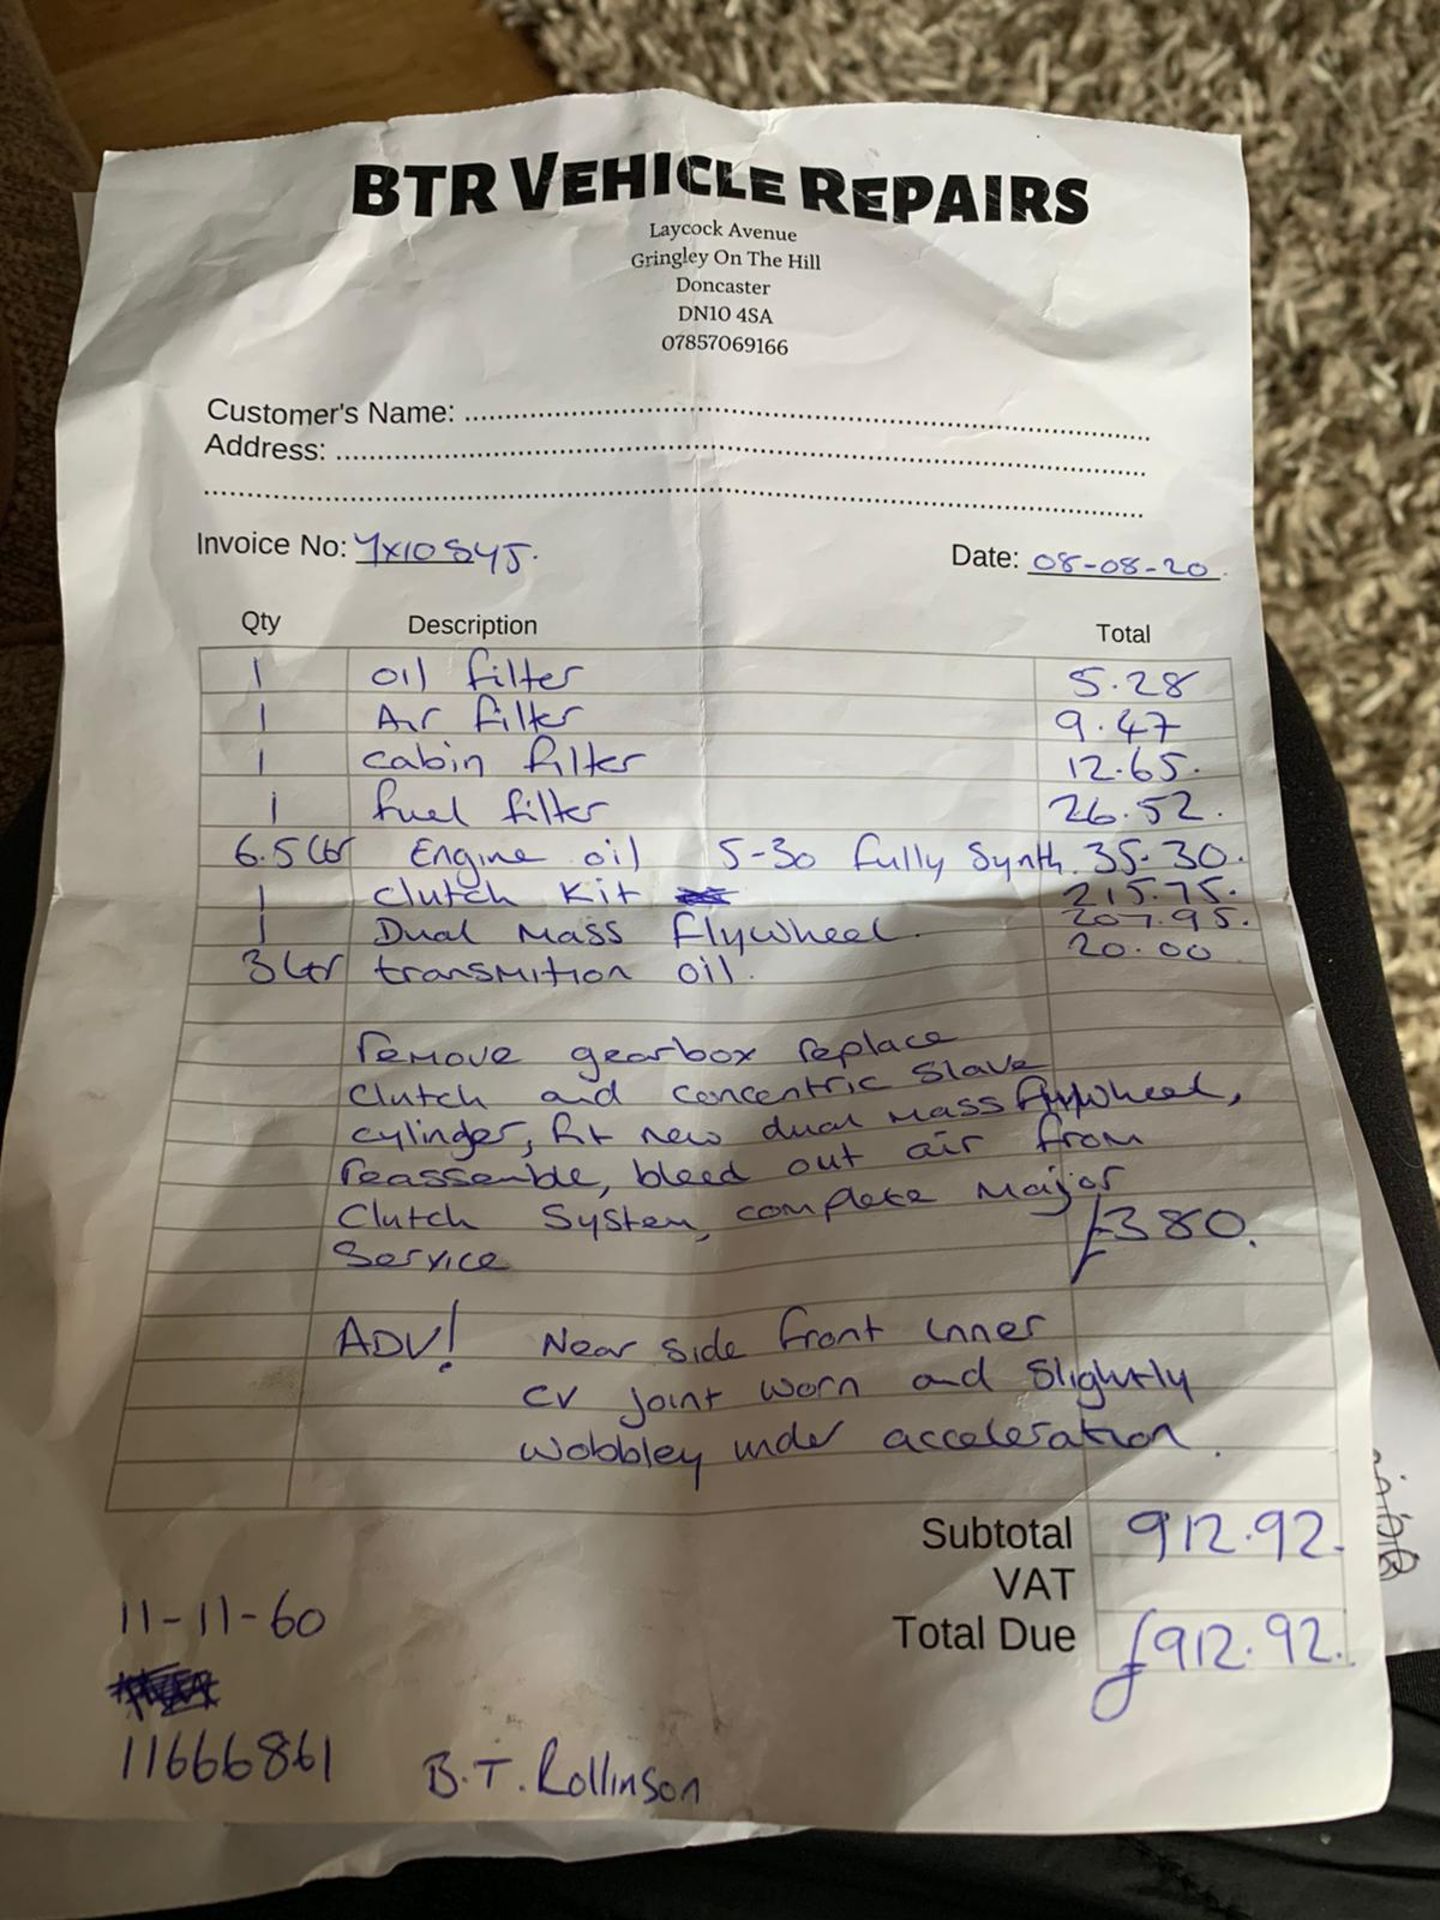 BTR VEHICLE REPAIRS
Laycock Avenue
Gringley On The Hill
Doncaster
DN10 4SA
07857069166
Customer's Name: ........................................
Address: ........................................
........................................
Invoice No: YX10 SYJ. Date: 08-08-20.
Qty Description Total
1 oil filter 5.28
1 Air filter 9.47
1 cabin filter 12.65.
1 fuel filter 26.52.
6.5 Ltr Engine oil 5-30 fully Synth. 35.30.
1 Clutch Kit 215.75.
1 Dual Mass flywheel. 207.95.
3 Ltr transmition oil. 20.00
remove gearbox replace
Clutch and concentric slave
cylinder, fit new dual mass flywheel,
reassemble, bleed out air from
Clutch System, complete Major
Service £380.
ADV! Near side front inner
CV joint worn and slightly
wobbley under acceleration.
Subtotal 912.92.
VAT
Total Due £912.92.
11-11-60
11666861 B.T. Rollinson